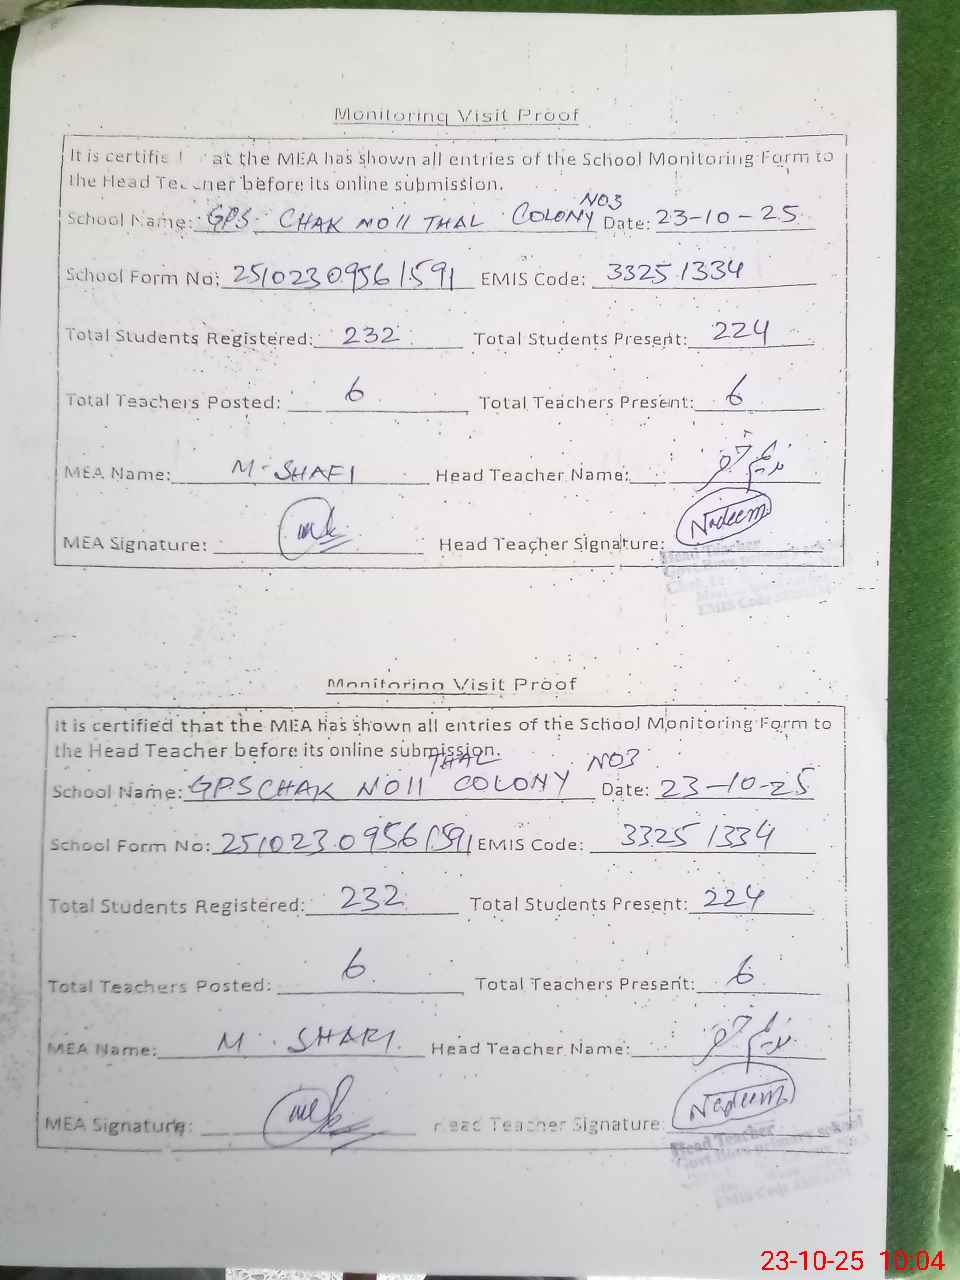 Monitoring Visit Proof
It is certifie at the MEA has shown all entries of the School Monitoring Form to
the Head Teacher before its online submission.
School Name: GPS. CHAK NO 11 THAL COLONY NO3 Date: 23-10-25
School Form No: 25102309561591 EMIS Code: 33251334
Total Students Registered: 232 Total Students Present: 224
Total Teachers Posted: 6 Total Teachers Present: 6
MEA Name: M. SHAFI Head Teacher Name:
MEA Signature: Head Teacher Signature: Nadeem
Head Teacher
Monitoring Visit Proof
It is certified that the MEA has shown all entries of the School Monitoring Form to
the Head Teacher before its online submission.
School Name: GPS CHAK NO 11 THAL COLONY NO3 Date: 23-10-25
School Form No: 25102309561591 EMIS Code: 33251334
Total Students Registered: 232 Total Students Present: 224
Total Teachers Posted: 6 Total Teachers Present: 6
MEA Name: M. SHAFI Head Teacher Name:
MEA Signature: Head Teacher Signature: Nadeem
Head Teacher
Govt primary school
EMIS Code
23-10-25 10:04